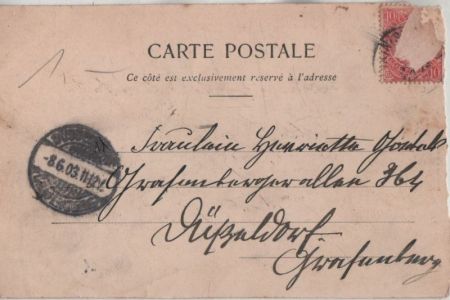 CARTE POSTALE
Ce côté est exclusivement reservé à l'adresse
10
10
-8.6.03.11-12
Fräulein Henriette
Grafenbergerallee 364
Düsseldorf
Grafenberg